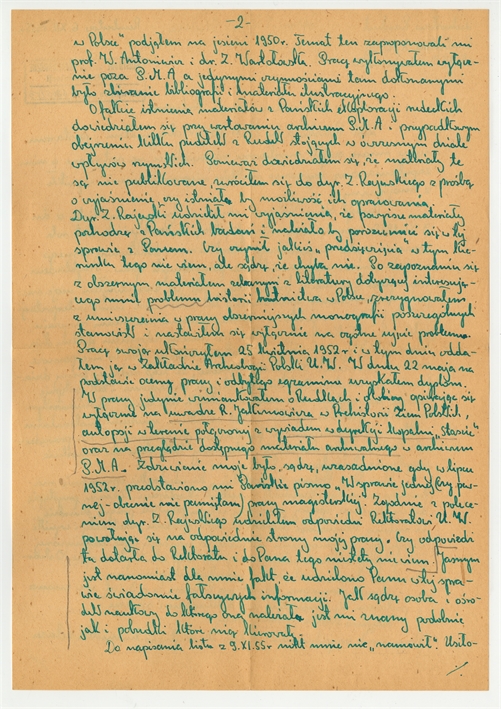 -2-
w Polsce" podjąłem na jesieni 1950 r. Temat ten zaproponowali mi
prof. W. Antoniewicz i dr. Z. Wartołowska. Pracę wykonywałem wyłącz-
nie poza P.M.A a jedynymi czynnościami tam dokonanymi
było zbieranie bibliografii i materiału ilustracyjnego.
O fakcie istnienia materiałów z Pańskich eksploracji rudeckich
dowiedziałem się przy wertowaniu archiwum P.M.A i przypadkowym
obejrzeniu kilku pudełek z Rudek stojących w ówczesnym dziale
wpływów rzymskich. Ponieważ dowiedziałem się, że materiały te
są nie publikowane zwróciłem się do dyr. Z. Rajewskiego z prośbą
o wyjaśnienie, czy istniała by możliwość ich opracowania.
Dyr. Z. Rajewski udzielił mi wyjaśnienia, że powyższe materiały
pochodzą z Pańskich badań i należało by porozumieć się w tej
sprawie z Panem. Czy czynił jakieś „przedsięwzięcia" w tym kie-
runku tego nie wiem, ale sądzę, że chyba nie. Po zapoznaniu się
z obszernym materiałem zebranym z literatury dotyczącej interesują-
cego mnie problemu historii hutnictwa w Polsce, zrezygnowałem
z umieszczenia w pracy obszerniejszych monografii poszczególnych
stanowisk i nastawiłem się wyłącznie na ogólne ujęcie problemu.
Pracę swoją ukończyłem 25 kwietnia 1952 r i w tym dniu odda-
łem ją w Zakładzie Archeologii Polski U.W. W dniu 22 maja na
podstawie oceny pracy i odbytego egzaminu uzyskałem dyplom.
W pracy jedynie wzmiankowałem o Rudkach i okolicy opierając się
wyłącznie na uwadze R. Jakimowicza w Prehistorii Ziem Polskich,
autopsji w terenie połączonej z wywiadem w dyrekcji kopalni „Staszic"
oraz na przeglądzie dostępnego materiału archiwalnego w archiwum
P.M.A. Zdziwienie moje było, sądzę, uzasadnione gdy w lipcu
1952 r. przedstawiono mi Pańskie pismo „W sprawie jednej (czy pew-
nej - obecnie nie pamiętam) pracy magisterskiej". Zgodnie z polece-
niem dyr. Z. Rajewskiego udzieliłem odpowiedzi Rektoratowi U.W.
powołując się na odpowiednie strony mojej pracy. Czy odpowiedź
ta dotarła do Rektoratu i do Pana tego niestety nie wiem. Jasnym
jest natomiast dla mnie fakt, że udzielono Panu w tej spra-
wie świadomie fałszywych informacji. Jak sądzę osoba i ośro-
dek naukowy do którego ona należała jest mi znany podobnie
jak i pobudki które nią kierowały.
Do napisania listu z 9.XI.55r nikt mnie nie „namówił". Usiło-